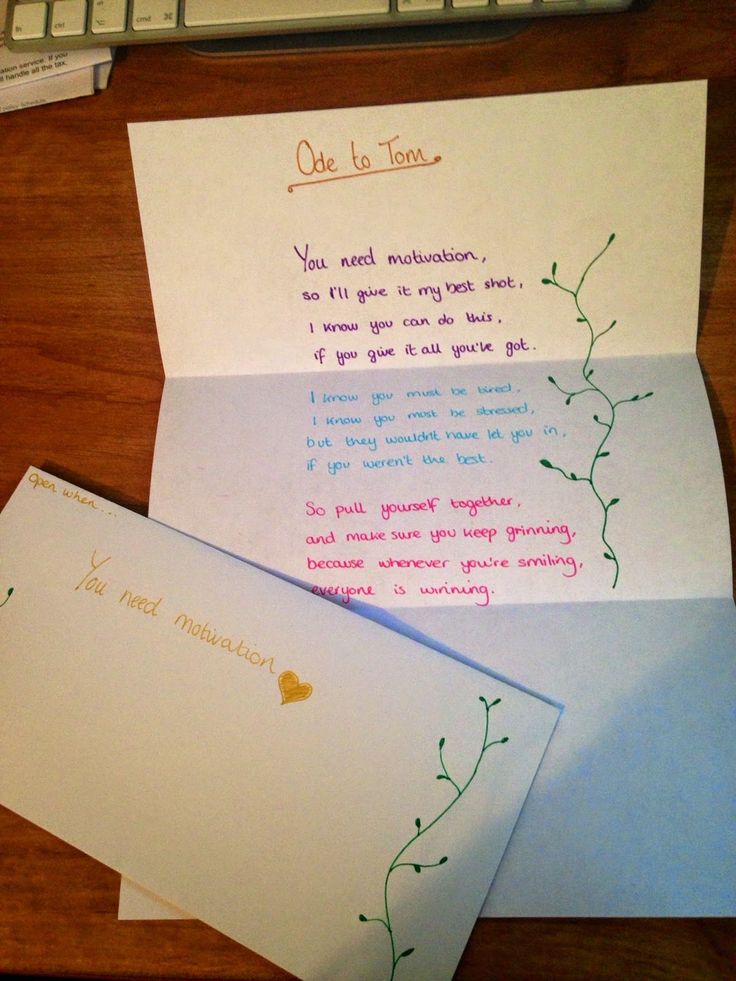 fn
ctrl
alt
⌥
cmd
⌘
⌘
ation service. If you
handle all the tax,
policy schedule
Ode to Tom
You need motivation,
so I'll give it my best shot,
I know you can do this,
if you give it all you've got.
I know you must be tired,
I know you must be stressed,
but they wouldn't have let you in,
if you weren't the best.
So pull yourself together,
and make sure you keep grinning,
because whenever you're smiling,
everyone is winning.
open when...
You need motivation